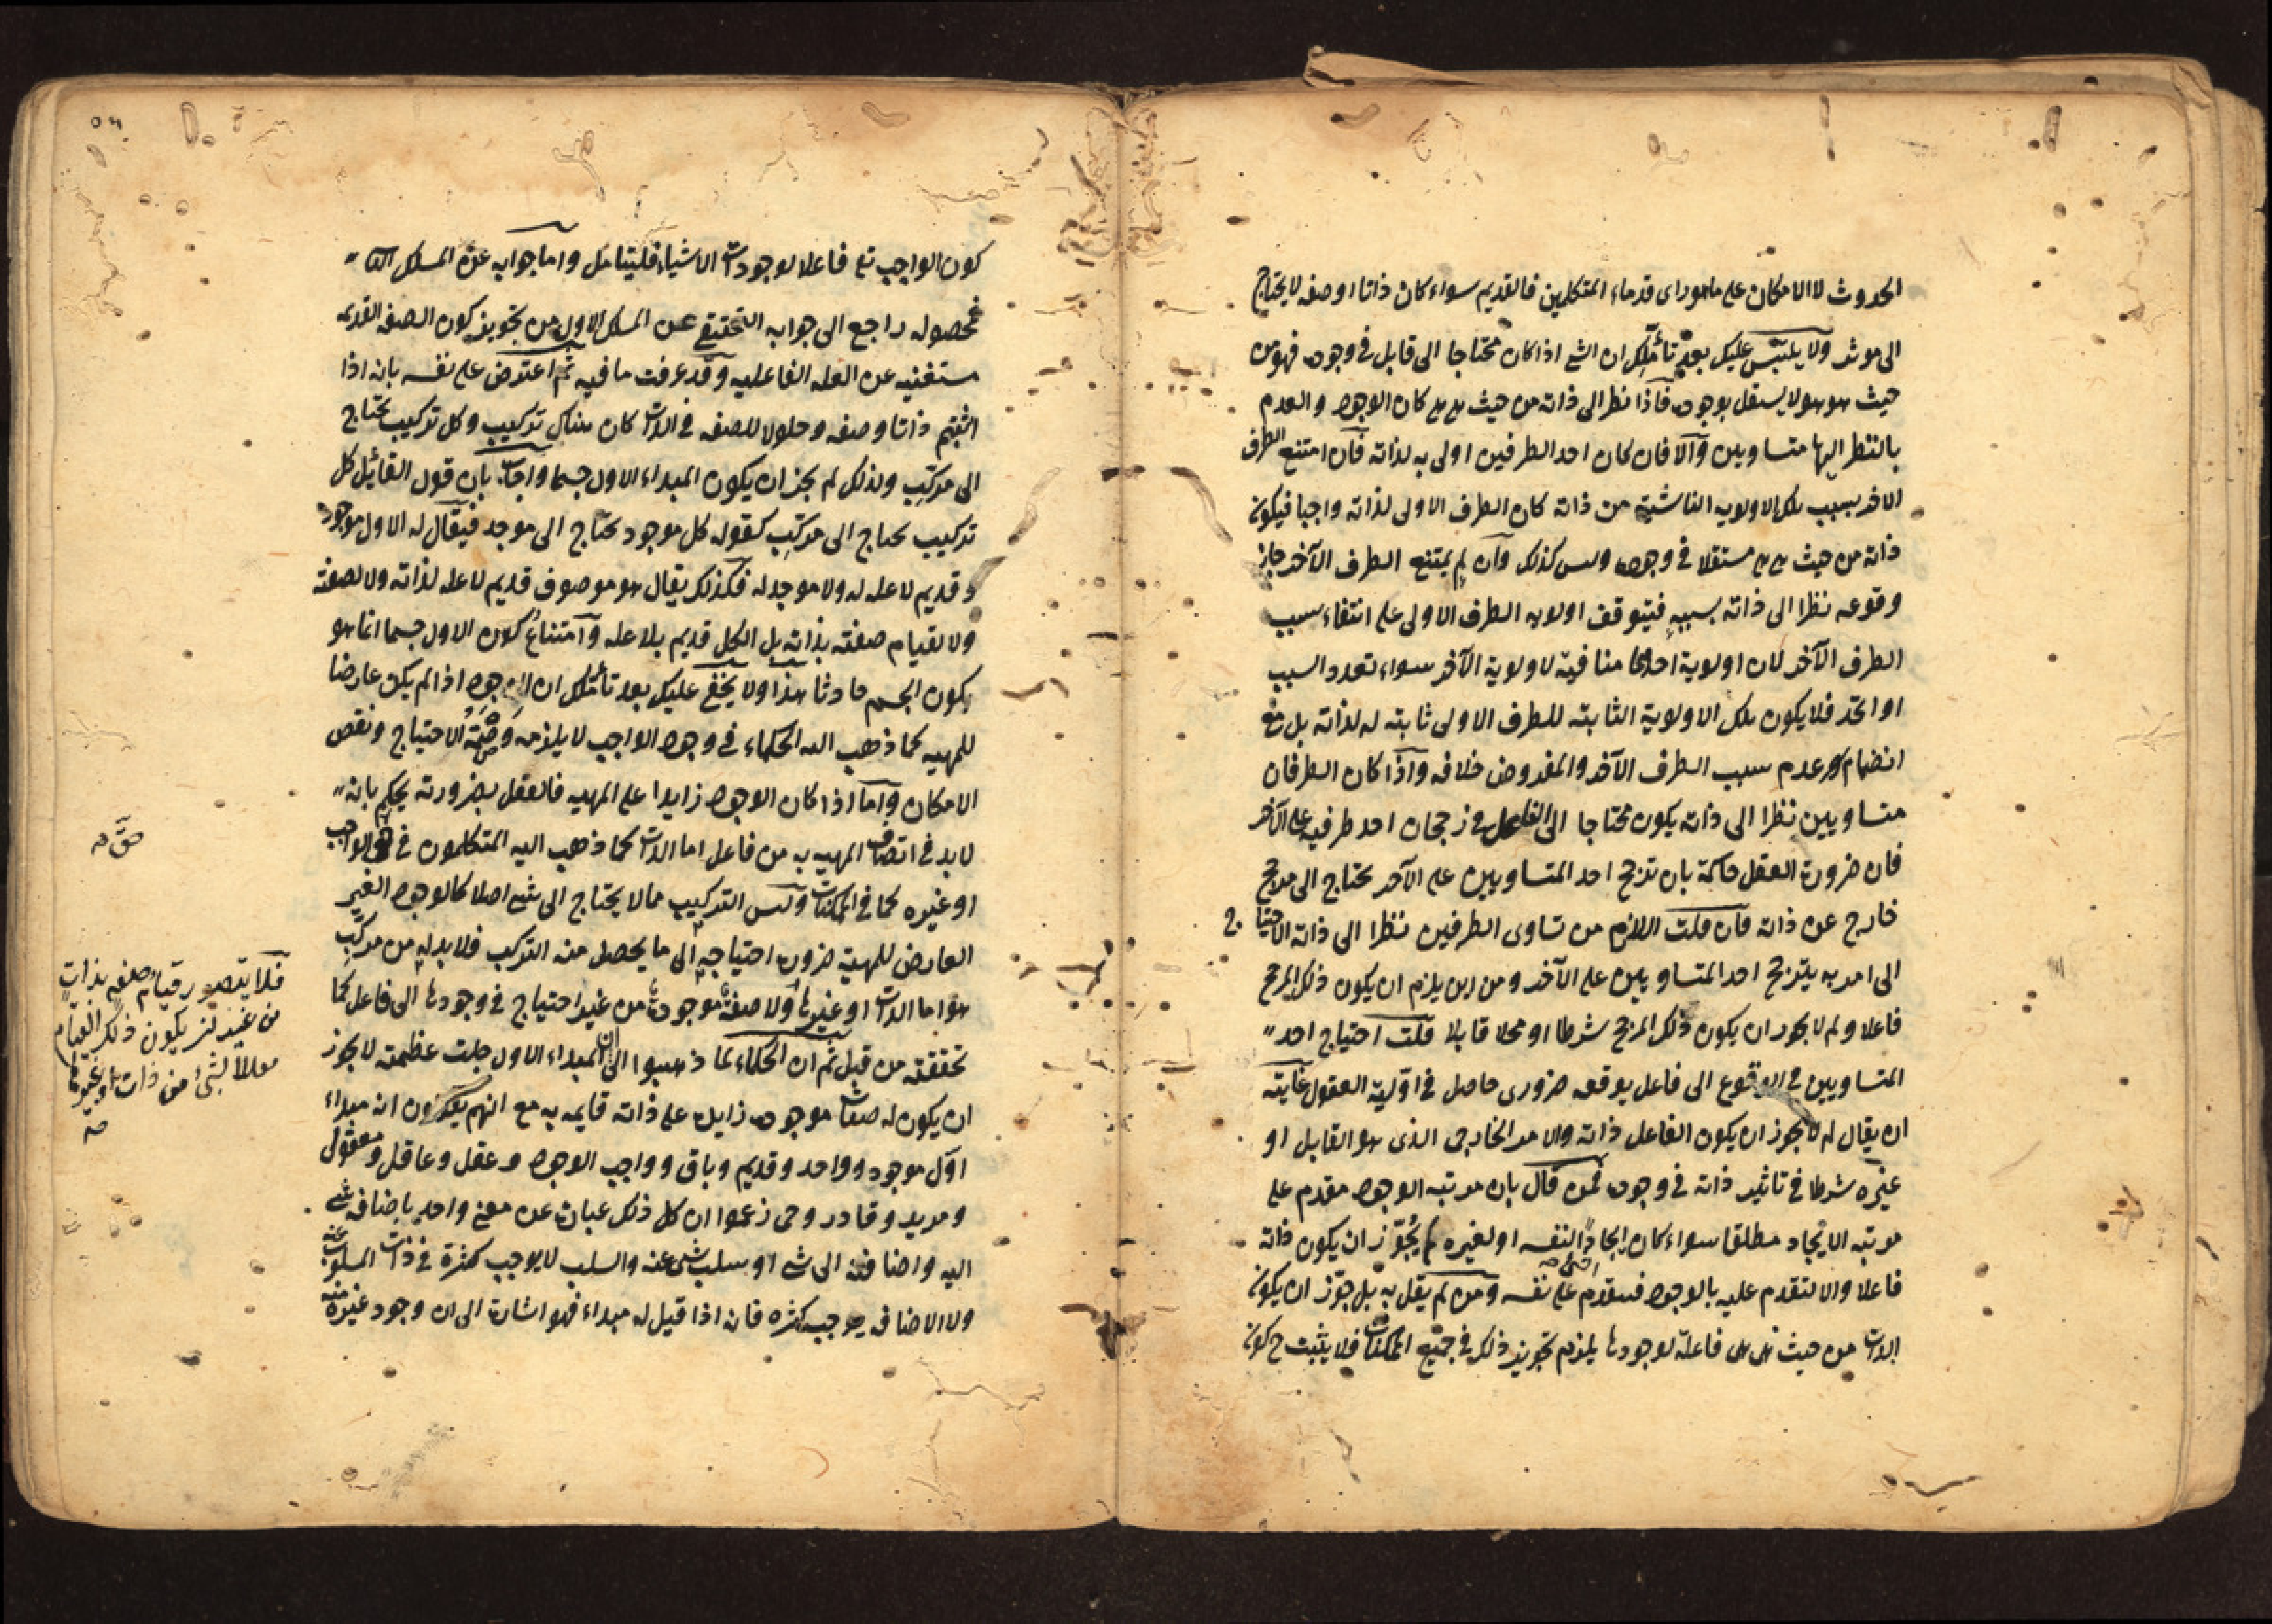 الحدوث لا الامكان على ما هو راى قدماء المتكلمين فالقديم سواء كان ذاتا او صفه لا يحتاج
الى موثر ولا يلتبس عليك بعد تأملك ان الشي اذا كان محتاجا الى قابل في وجوده فهو من
حيث هو هو لا يستقل بوجوده فاذا نظر الى ذاته من حيث هي هي كان الوجود والعدم
بالنظر اليها متساويين والا فان كان احد الطرفين اولى به لذاته فان امتنع الطرف
الاخر بسبب تلك الاولويه الناشئة من ذاته كان الطرف الاولى لذاته واجبا فيكون
ذاته من حيث هي هي مستقلا في وجوده وليس كذلك وان لم يمتنع الطرف الآخر جاز
وقوعه نظرا الى ذاته بسببه فيتوقف اولويه الطرف الاولى على انتفاء سبب
الطرف الآخر لان اولوية احدهما منافية لاولوية الآخر سواء تعدد السبب
او اتحد فلا يكون تلك الاولوية الثابته للطرف الاولى ثابته له لذاته بل مع
انضمام عدم سبب الطرف الآخر والمفروض خلافه واذا كان الطرفان
متساويين نظرا الى ذاته يكون محتاجا الى الفاعل في رجحان احد طرفيه على الآخر
فان ضرورة العقل حاكمة بان ترجح احد المتساويين على الآخر يحتاج الى مرجح
خارج عن ذاته فان قلت اللازم من تساوى الطرفين نظرا الى ذاته الاحتياج
الى امر به يترجح احد المتساويين على الآخر ومن اين يلزم ان يكون ذلك المرجح
فاعلا ولم لا يجوز ان يكون ذلك المرجح شرطا او محلا قابلا قلت احتياج احد
المتساويين في الوقوع الى فاعل يوقعه ضرورى حاصل في اولية العقول غايته
ان يقال لم لا يجوز ان يكون الفاعل ذاته والامر الخارجى الذى هو القابل او
غيره شرطا في تاثير ذاته في وجوده فمن قال بان مرتبه الوجود مقدم على
مرتبه الايجاد مطلقا سواء كان ايجادا لنفسه او لغيره لم يجوز ان يكون ذاته
فاعلا والا لتقدم عليه بالوجود فيتقدم على نفسه ومن لم يقل به بل جوز ان يكون
الذات من حيث هى هى فاعلة لوجودها يلزم تجويز ذلك في جميع الممكنات فلا يثبت ح كون
كون الواجب تع فاعلا لوجودات الاشياء فليتامل واما جوابه عن المسلك الثا
فمحصوله راجع الى جوابه التحقيقي عن المسلك الاول من تجويز كون الصفه القديمه
مستغنيه عن العله الفاعليه وقد عرفت ما فيه ثم اعترض على نفسه بانه اذا
اثبتم ذاتا وصفه وحلولا للصفه في الذات كان هناك تركيب وكل تركيب يحتاج
الى مركب ولذلك لم يجز ان يكون المبداء الاول جسما واجاب بان قول القائل كل
تركيب يحتاج الى مركب كقوله كل موجود يحتاج الى موجد فيقال له الاول موجود
و قديم لا عله له ولا موجد له فكذلك يقال هو موصوف قديم لا عله لذاته ولا لصفته
ولا لقيام صفته بذاته بل الكل قديم بلا عله وامتناع كون الاول جسما انما هو
لكون الجسم حادثا هذا ولا يخفى عليك بعد تأملك ان الوجود اذا لم يكن عارضا
للمهيه كما ذهب اليه الحكماء في وجود الواجب لا يلزمه وصمة الاحتياج ونقص
الامكان واما اذا كان الوجود زايدا على المهيه فالعقل بضرورته يحكم بانه
لا بد في اتصاف المهيه به من فاعل اما الذات كما ذهب اليه المتكلمون في الواجب
او غيره كما في الممكنات وليس التركيب مما لا يحتاج الى شي اصلا كالوجود الغير
العارض للمهية ضرورة احتياجه الى ما يحصل منه التركب فلا بد له من مركب
هو اما الذات او غيرها ولا صفة موجودة من غير احتياج في وجودها الى فاعل كما
تحققته من قبل ثم ان الحكماء لما ذهبوا الى ان المبداء الاول جلت عظمته لا يجوز
ان يكون له صفات موجوده زايده على ذاته قايمه به مع انهم يقولون انه مبداء
اول موجود وواحد وقديم وباق وواجب الوجود وعقل وعاقل ومعقول
ومريد وقادر وحى زعموا ان كل ذلك عبارة عن معنى واحد باضافه شي
اليه واضافته الى شي او سلب شى عنه والسلب لا يوجب كثرة في ذات المسلوب عنه
ولا الاضافه يوجب كثره فانه اذا قيل له مبداء فهو اشارة الى ان وجود غيره منه
حق صه
فلا يتصور قيام صفه بذات
من غير ان يكون ذلك القيام
معللا بشئ من ذات او غيرها
صه